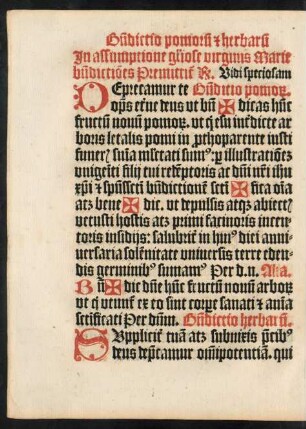 Bn̄dictio pomorū ⁊ herbarū
In assumptione gl'iose virginis Marie
bn̄dictiões Premittit' ℟. Vidi speciosam
DEprecamur te Bn̄dictio pomoꝝ.
om̄ps eterne deus vt bn̄ ✠ dicas hūc
fructū nouū pomoꝝ. vt q̄ esu interdicte ar
boris letalis pomi in prothoparente iusti
funeris sn̄ia mulctati sum⁹. ꝑ illustrationē
vnigeniti filij tui redēptoris ac dn̄i nr̄i ihū
xp̄i ⁊ sp̄ūssctī bn̄dictionē scti ✠ fica oīa
atꝫ bene ✠ dic. vt depulsis atqꝫ abiectis
vetusti hostis atꝫ primi facinoris incen
toris insidijs: salubrit' in hui⁹ diei anni
uersaria solēnitate vniuersis terre eden
dis germinib⁹ sumam⁹ Per d.n. Alia.
Bn̄ ✠ dic dn̄e hūc fructū nouoꝝ arboꝝ
vt q̄ vtunt' ex eo sint corpe sanati ⁊ anīa
sctificati Per dn̄um. Bn̄dictio herbarū.
SVpplicit' tuā atꝫ submissis p̄cib⁹
deus dep̄camur om̄ipotenciā. qui